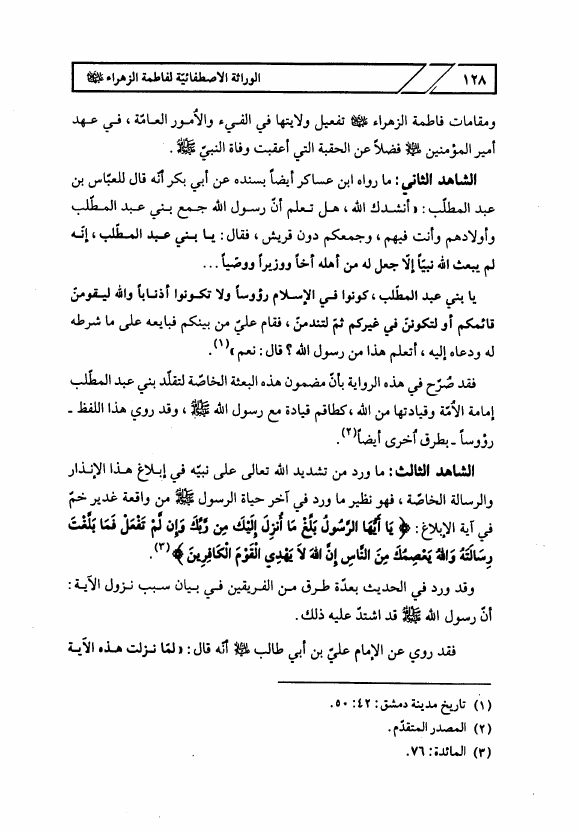 ١٢٨ الوراثة الاصطفائيّة لفاطمة الزهراء ﷷ
ومقامات فاطمة الزهراء تفعيل ولايتها في الفيء والأمور العامّة ، في عهد
أمير المؤمنين فضلاً عن الحقبة التي أعقبت وفاة النبيّ ﷺ .
الشاهد الثاني: ما رواه ابن عساكر أيضاً بسنده عن أبي بكر أنّه قال للعبّاس بن
عبد المطلّب : « أنشدك الله ، هل تعلم أنّ رسول الله جمع بني عبد المطلب
وأولادهم وأنت فيهم ، وجمعكم دون قريش ، فقال : يا بني عبد المطلب ، إنّه
لم يبعث الله نبيّاً إلّا جعل له من أهله أخاً ووزيراً ووصيّاً ...
يا بني عبد المطلب ، كونوا في الإسلام رؤوساً ولا تكونوا أذناباً والله ليقومنّ
قائمكم أو لتكوننّ في غيركم ثمّ لتندمنّ ، فقام عليّ من بينكم فبايعه على ما شرطه
له ودعاه إليه ، أتعلم هذا من رسول الله ؟ قال : نعم »(١).
فقد صُرّح في هذه الرواية بأنّ مضمون هذه البعثة الخاصّة لتقلّد بني عبد المطلب
إمامة الأمّة وقيادتها من الله ، كطاقم قيادة مع رسول الله ﷺ ، وقد روي هذا اللفظ ـ
رؤوساً ـ بطرق أخرى أيضاً(٢).
الشاهد الثالث: ما ورد من تشديد الله تعالى على نبيّه في إبلاغ هذا الإنذار
والرسالة الخاصّة ، فهو نظير ما ورد في آخر حياة الرسول ﷺ من واقعة غدير خمّ
في آية الإبلاغ : ﴿ يَا أَيُّهَا الرَّسُولُ بَلِّغْ مَا أُنزِلَ إِلَيْكَ مِن رَّبِّكَ وَإِن لَّمْ تَفْعَلْ فَمَا بَلَّغْتَ
رِسَالَتَهُ وَاللهُ يَعْصِمُكَ مِنَ النَّاسِ إِنَّ اللهَ لَا يَهْدِي الْقَوْمَ الْكَافِرِينَ ﴾(٣).
وقد ورد في الحديث بعدّة طرق من الفريقين في بيان سبب نزول الآية :
أنّ رسول الله ﷺ قد اشتدّ عليه ذلك .
فقد روي عن الإمام عليّ بن أبي طالب أنّه قال : « لمّا نزلت هذه الآية
(١) تاريخ مدينة دمشق : ٤٢ : ٥٠.
(٢) المصدر المتقدّم .
(٣) المائدة : ٧٦.